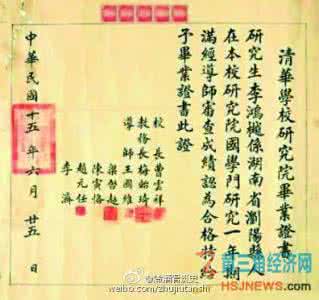 清華學校研究院畢業證書
研究生李鴻樾係湖南省瀏陽縣
在本校研究院國學門研究一年期
滿經導師審查成績認為合格特給
予畢業證書此證
校長曹雲祥
教務長梅貽琦
導師王國維
梁啟超
陳寅恪
趙元任
李濟
中華民國十五年六月廿五日
第三角经济网
weibo.com/zhujutanshi